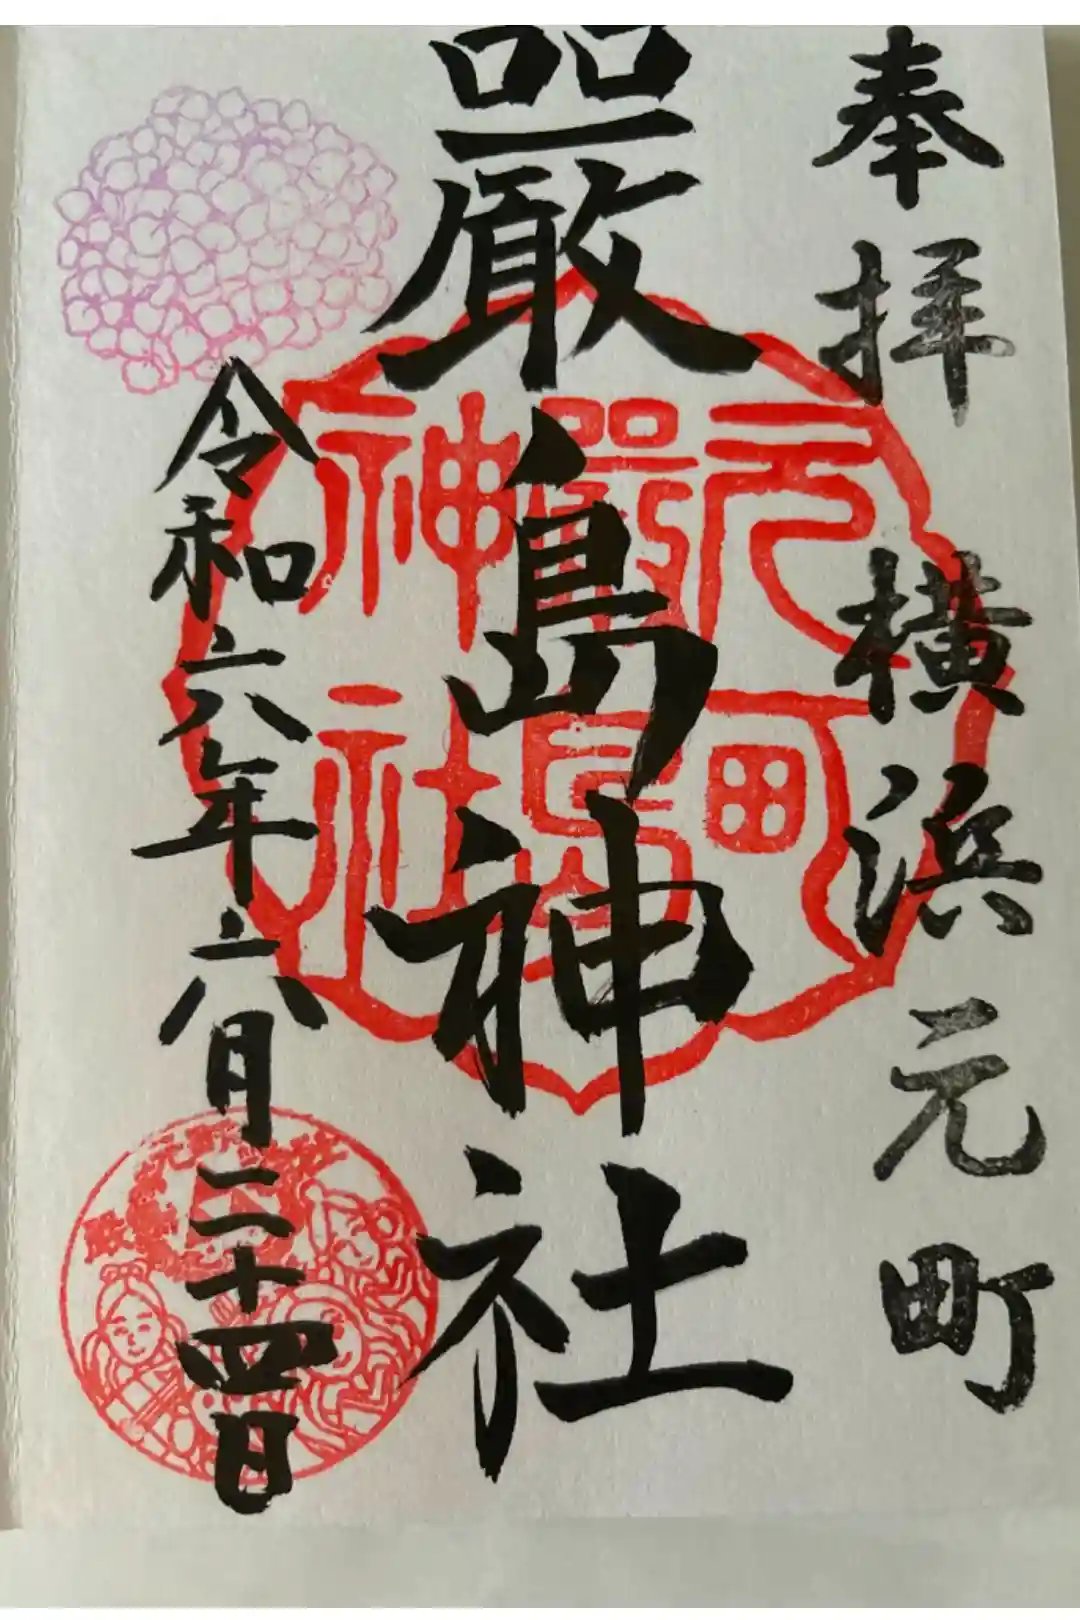 奉拝
横浜元町
嚴島神社
令和六年六月二十四日
元町
嚴島
神社